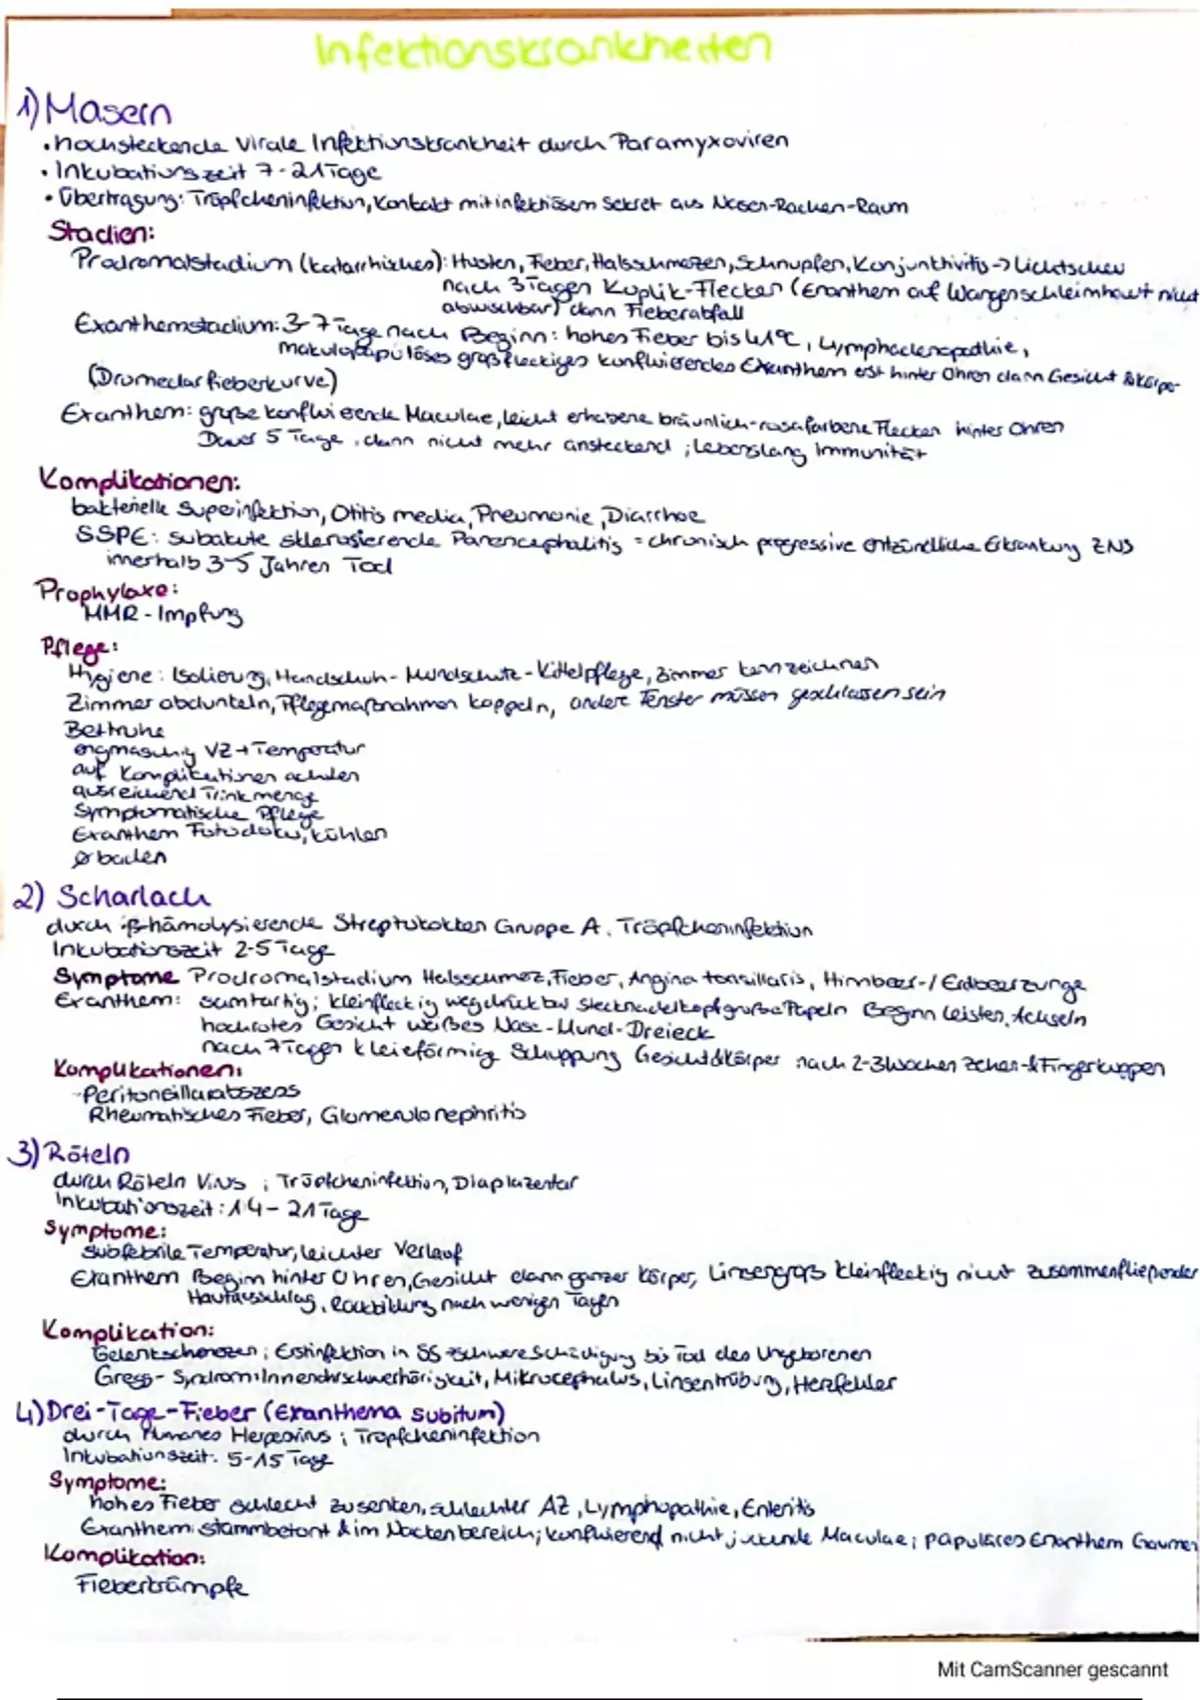 Infektionskrankheiten
1) Masern
• hochsteckende virale Infektionskrankheit durch Paramyxoviren
• Inkubationszeit 7-21 Tage
• Übertragung: Tröpfcheninfektion, Kontakt mit infektiösem Sekret aus Nasen-Rachen-Raum
Stadien:
Prodromalstadium (katarrhisches): Husten, Fieber, Halsschmerzen, Schnupfen, Konjunktivitis -> Lichtscheu
nach 3 Tagen Koplik-Flecken (Enanthem auf Wangenschleimhaut nicht
abwischbar) dann Fieberabfall
Exanthemstadium: 3-7 Tage nach Beginn: hohes Fieber bis 41°C, Lymphadenopathie,
makulopapulöses großfleckiges konfluierendes Exanthem erst hinter Ohren dann Gesicht & Körper
(Dromedarfieberkurve)
Exanthem: große konfluierende Maculae, leicht erhabene bräunlich-rosafarbene Flecken hinter Ohren
Dauer 5 Tage, dann nicht mehr ansteckend; lebenslang Immunität
Komplikationen:
bakterielle Superinfektion, Otitis media, Pneumonie, Diarrhoe
SSPE: subakute sklerosierende Panencephalitis = chronisch progressive entzündliche Erkrankung ZNS
innerhalb 3-5 Jahren Tod
Prophylaxe:
MMR-Impfung
Pflege:
Hygiene: Isolierung, Handschuh-Mundschutz-Kittelpflege, Zimmer kennzeichnen
Zimmer abdunkeln, Pflegemaßnahmen koppeln, andere Fenster müssen geschlossen sein
Bettruhe
engmaschig VZ + Temperatur
auf Komplikationen achten
ausreichend Trinkmenge
Symptomatische Pflege
Exanthem Fotodoku, kühlen
ø baden
2) Scharlach
durch β-hämolysierende Streptokokken Gruppe A, Tröpfcheninfektion
Inkubationszeit 2-5 Tage
Symptome Prodromalstadium Halsschmerz, Fieber, Angina tonsillaris, Himbeer-/Erdbeerzunge
Exanthem: samtartig; kleinfleckig wegdrückbar stecknadelkopfgroße Papeln Beginn Leisten, Achseln
hochrotes Gesicht weißes Nase-Mund-Dreieck
nach 7 Tagen kleieförmig Schuppung Gesicht & Körper nach 2-3 Wochen Zehen- & Fingerkuppen
Komplikationen:
Peritonsillarabszess
Rheumatisches Fieber, Glomerulonephritis
3) Röteln
durch Röteln Virus; Tröpfcheninfektion, Diaplazentar
Inkubationszeit: 14-21 Tage
Symptome:
subfebrile Temperatur, leichter Verlauf
Exanthem Beginn hinter Ohren, Gesicht dann ganzer Körper, Linsengroß kleinfleckig nicht zusammenfließender
Hautausschlag, Rückbildung nach wenigen Tagen
Komplikation:
Gelenkschmerzen; Erstinfektion in SS -> schwere Schädigung bis Tod des Ungeborenen
Gregg-Syndrom: Innenohrschwerhörigkeit, Mikrocephalus, Linsentrübung, Herzfehler
4) Drei-Tage-Fieber (Exanthema subitum)
durch Humanes Herpesvirus; Tröpfcheninfektion
Inkubationszeit: 5-15 Tage
Symptome:
hohes Fieber schlecht zu senken, schlechter AZ, Lymphopathie, Enteritis
Exanthem: stammbetont & im Nackenbereich; konfluierend nicht juckende Maculae; papulares Enanthem Gaumen
Komplikation:
Fieberkrämpfe
Mit CamScanner gescannt